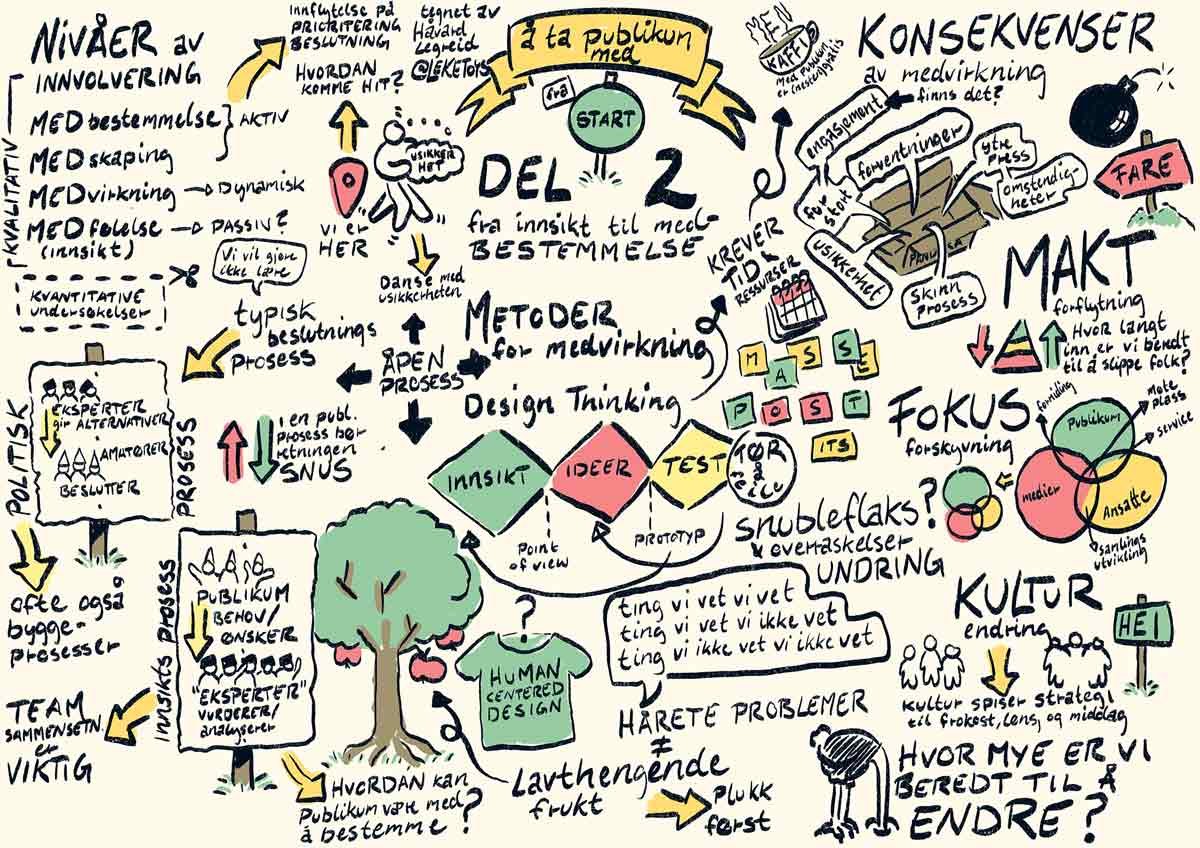 NIVÅER av
INNVOLVERING
KVALITATIV
MEDbestemmelse
MEDskaping
AKTIV
MEDvirkning
Dynamisk
MEDfølelse
(innsikt)
PASSIV?
KVANTITATIVE
undersøkelser
innflytelse på
PRIORITERING
BESLUTNING
HVORDAN
KOMME HIT?
vi er
HER
tegnet av
Håvard
Legreid
@LEKETOYS
USIKKER
HET
Danse med
usikkerheten
å ta publikum
med
fra
START
DEL 2
fra innsikt til med-
BESTEMMELSE
MEN
KAFFI
med publikum
er (nesten) gratis
KONSEKVENSER
av medvirkning
finns det?
engasjement
forventninger
for
stort
usikkerhet
ytre
press
omstendig-
heter
SKINN
prosess
FARE
KREVER
TID &
RESSURSER
MAKT
forflytning
Hvor langt
inn er vi beredt
til å slippe folk?
Vi vil gjøre
ikke lære
typisk
beslutnings
prosess
POLITISK
PROSESS
EKSPERTER
gir ALTERNATIVER
AMATØRER
BESLUTTER
ofte også
bygge-
prosesser
i en publ.
prosess bør
retningen
SNUS
ÅPEN
PROSESS
METODER
for medvirkning
Design Thinking
INNSIKT
IDEER
TEST
TØR
å
feile
Point
of view
PROTOTYP
MASSE
POST
ITS
FOKUS
forskyvning
formidling
Møte
plass
service
Publikum
medier
Ansatte
samlings
utvikling
snubleflaks?
& overraskelser
UNDRING
ting vi vet vi vet
ting vi vet vi ikke vet
ting vi ikke vet vi ikke vet
KULTUR
endring
HEI
kultur spiser strategi
til frokost, lønsj og middag
INNSIKTS PROSESS
PUBLIKUM
BEHOV/
ØNSKER
"EKSPERTER"
VURDERER/
analyserer
TEAM
SAMMENSETN.
er
VIKTIG
HVORDAN kan
Publikum være med
å bestemme?
?
HUMAN
CENTERED
DESIGN
HÅRETE PROBLEMER
≠
Lavthengende
frukt
Plukk
først
HVOR MYE ER VI
BEREDT TIL Å
ENDRE?